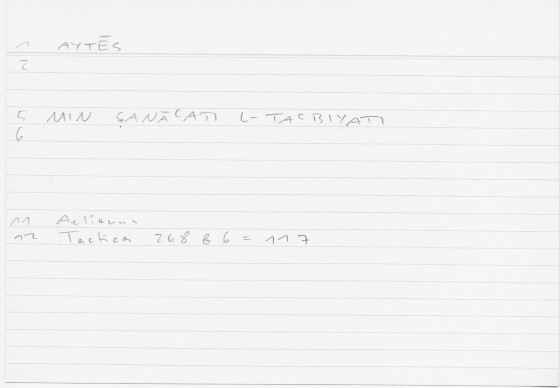 1 AYTĒS
2
5 MIN ṢANĀʿATI L-TAʿBIYATI
6
11 Aelianus
12 Tactica 268 B 6 = 117